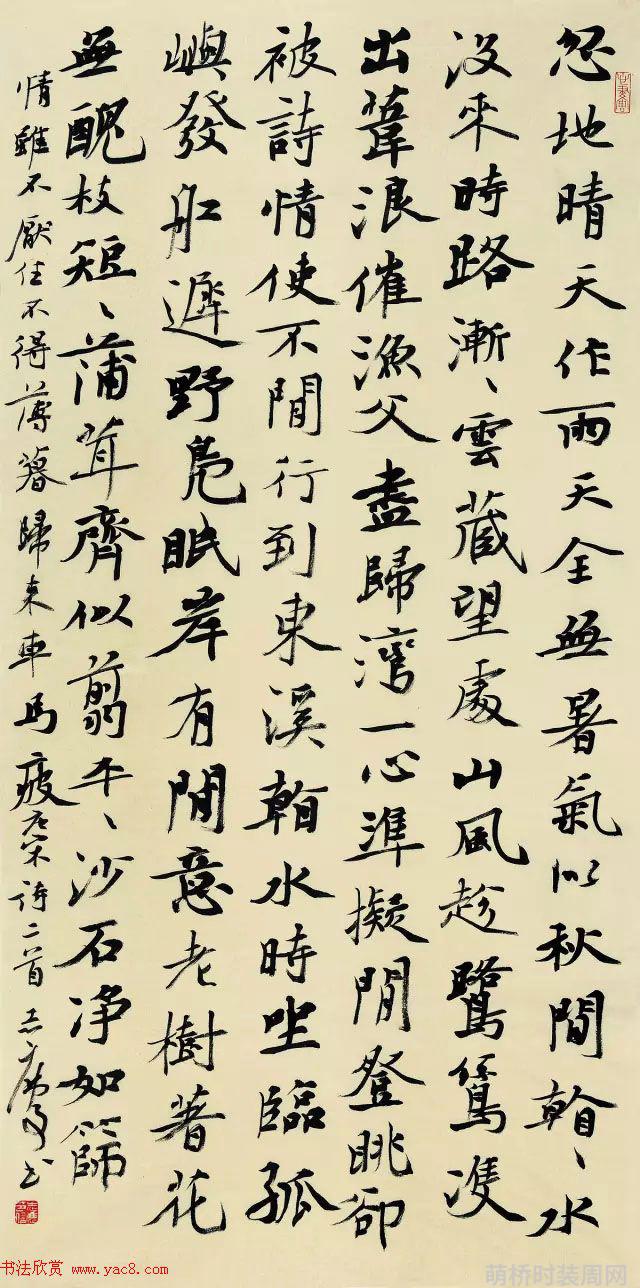 忽地晴天作雨天全無暑氣似秋間看看水
沒來時路漸漸雲藏望處山風趁鷺鷥雙
出葦浪催漁父盡歸灣一心準擬閒登眺卻
被詩情使不閒行到東溪看水時坐臨孤
嶼發船遲野鳧眠岸有閒意老樹著花
無醜枝短短蒲茸齊似翦平平沙石淨如篩
情雖不厭住不得薄暮歸來車馬疲 宋詩二首 書
书法欣赏 www.yac8.com
萌桥时装周网